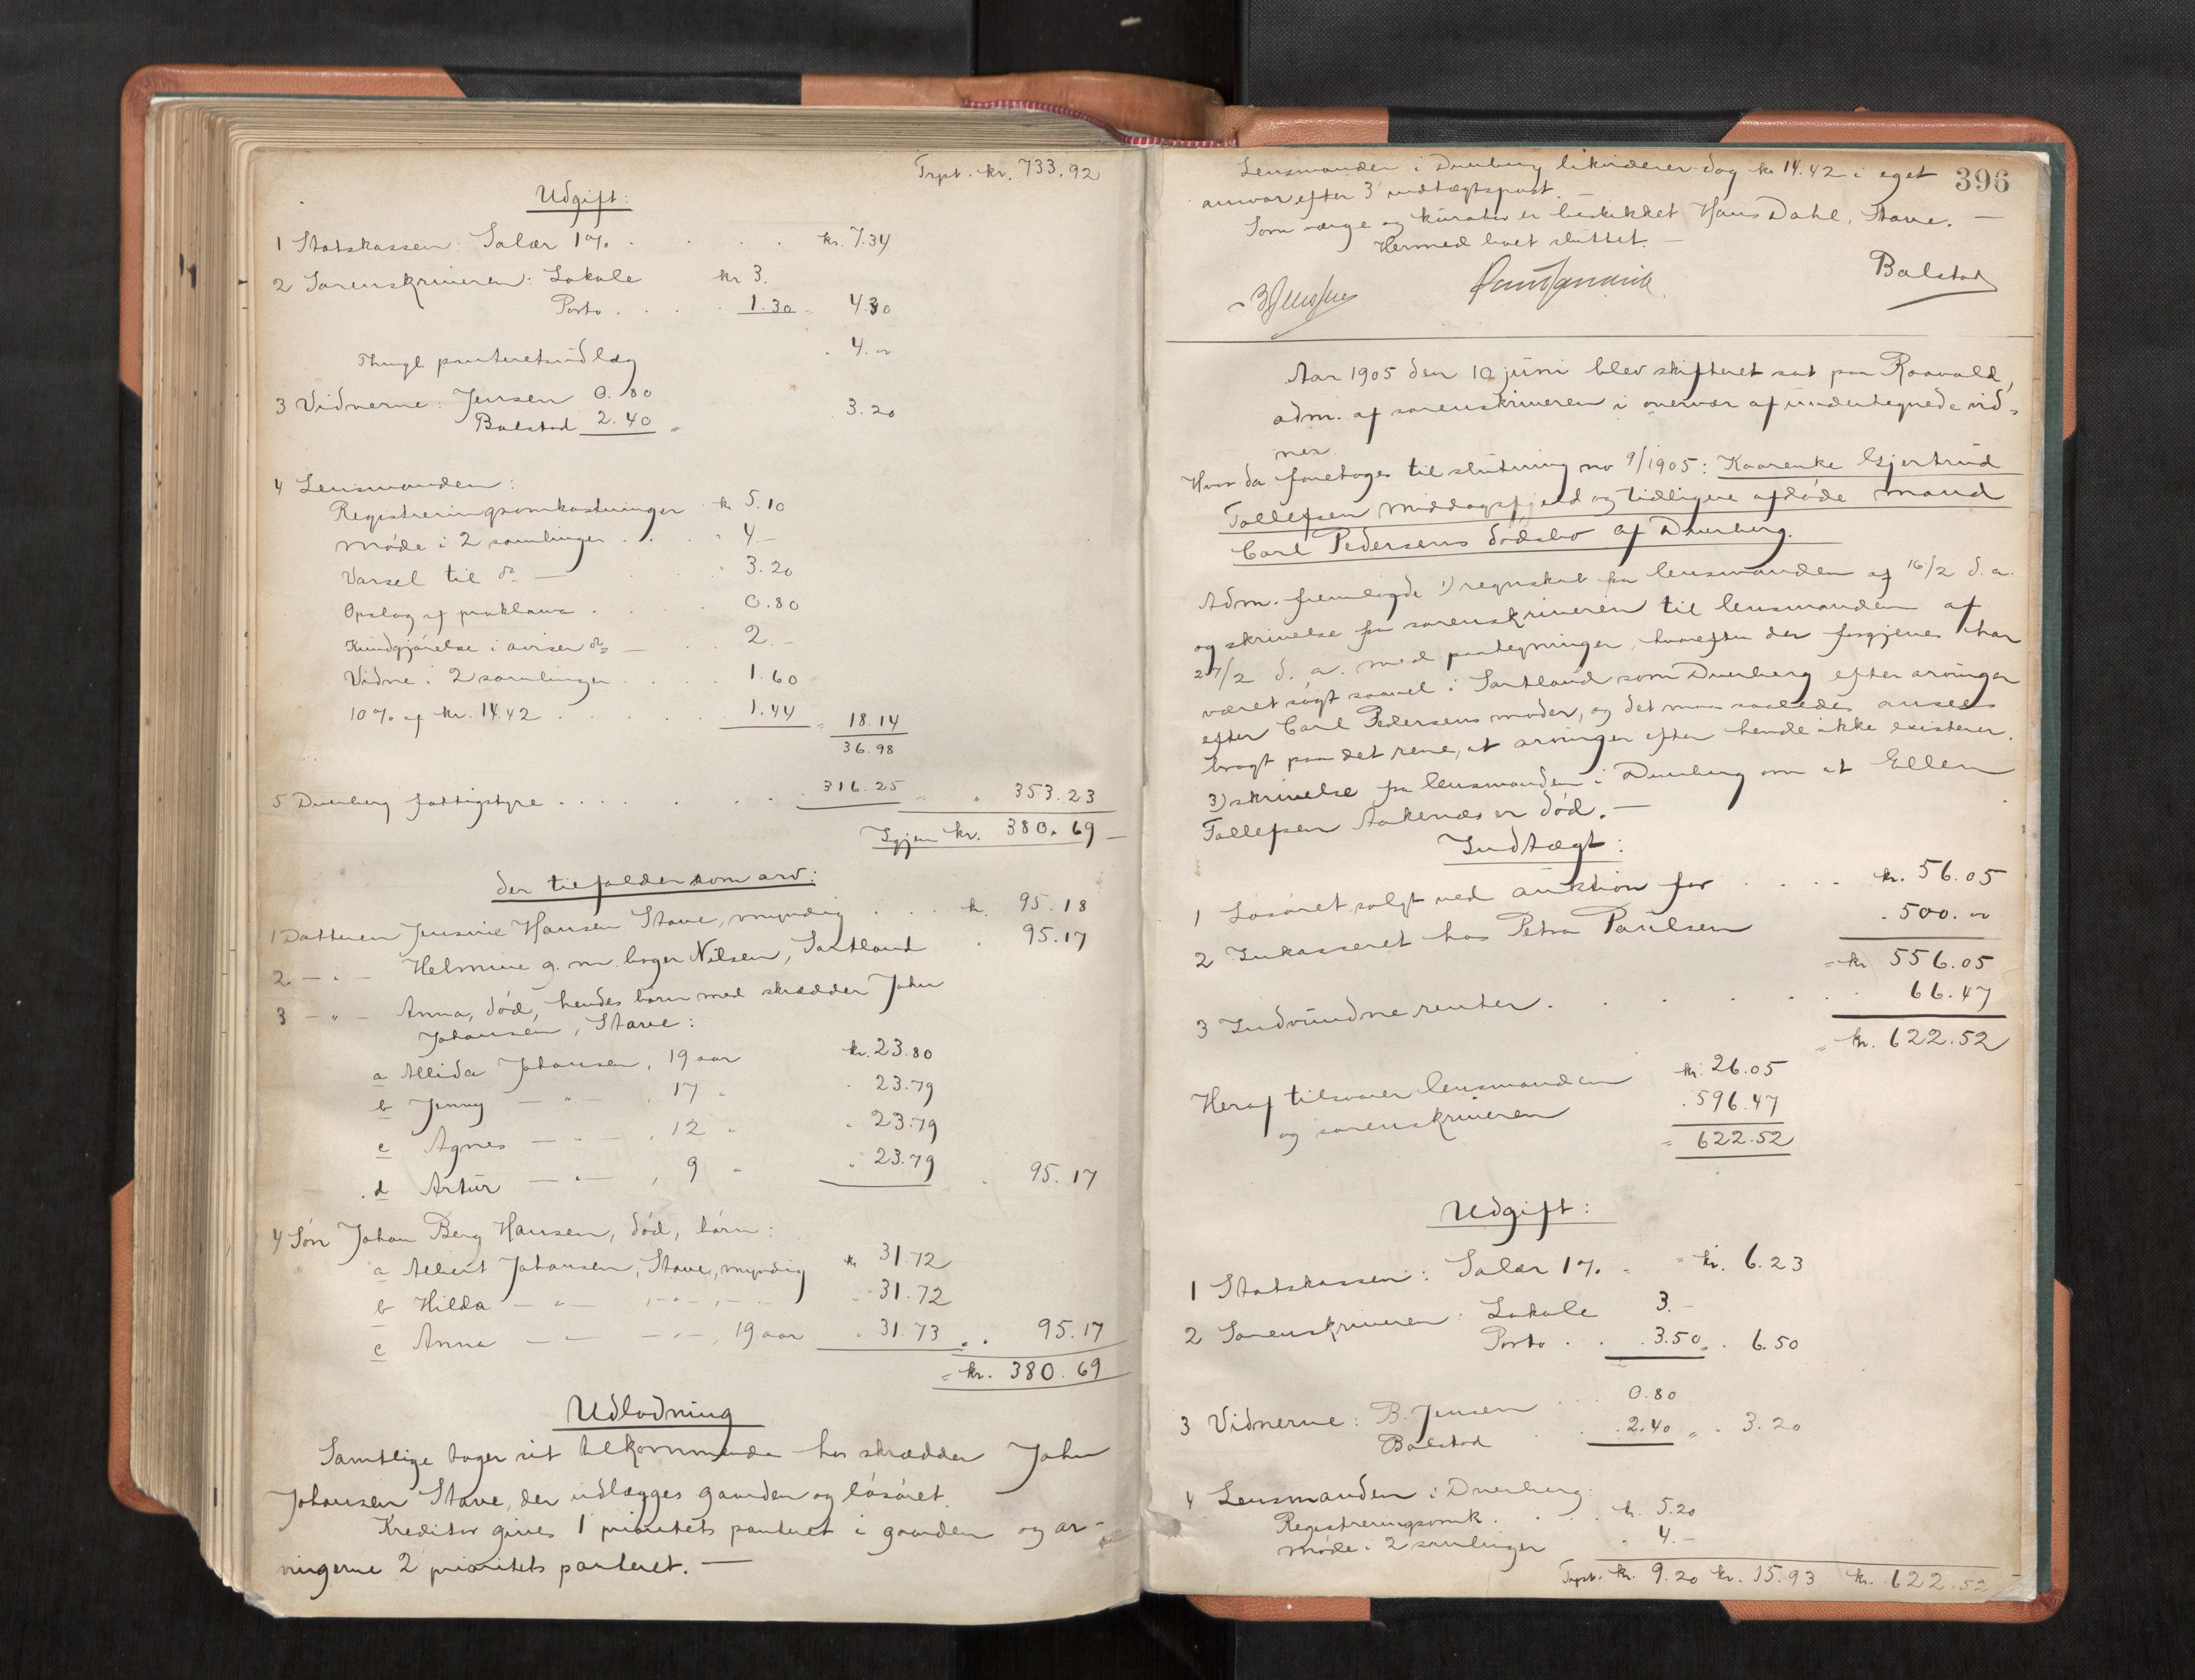 Trpt. kr. 733.92
Udgift:
1 Statskassen: Salær 1% . . . kr. 7.34
2 Sorenskriveren: Lokale kr 3.
Porto . . . 1.30 = 4.30
Thingl. panteretsudlæg . 4.00
3 Vidnerne: Jensen 0.80
Balstad 2.40 = 3.20
4 Lensmanden:
Registreringsomkostninger kr 5.10
Møde i 2 samlinger . . . 4.-
Varsel til do — . 3.20
Opslag af proklama . . 0.80
Kundgjørelse i aviser do — . 2.-
Vidne i 2 samlinger . . . 1.60
10% af kr. 14.42 . . . 1.44 = 18.14
36.98
5 Dverberg fattigstyre . . . . . 316.25 = . 353.23
Igjen kr. 380.69 —
der tilfalder som arv:
1 Datteren Jensine Hansen Stave, myndig . . . kr. 95.18
2 — " — Helmine g. m. boger Nilsen, Sortland . 95.17
3 — " — Anna, død, hendes børn med skrædder John
Johansen, Stave:
a Allida Johansen, 19 aar kr. 23.80
b Jenny — " — , 17 " . 23.79
c Agnes — " — , 12 " . 23.79
d Artur — " — , 9 " . 23.79 = . 95.17
4 Søn Johan Berg Hansen, død, børn:
a Albert Johansen, Stave, myndig kr 31.72
b Hilda — " — , — " — , — " — 31.72
c Anna — " — — " — , 19 aar . 31.73 = . 95.17
= kr. 380.69
Udlodning
Samtlige tager sit tilkommende hos skrædder John
Johansen Stave, der udlægges gaarden og løsøret.
Kreditor gives 1 prioritets panteret i gaarden og ar-
vingerne 2 prioritets panteret. —
396
Lensmanden i Dverberg likviderer dog kr 14.42 i eget
ansvar efter 3 indtægtspost. —
Som værge og kurator er beskikket Hans Dahl, Stave. —
Hermed boet sluttet. —
B Jensen
Balstad
Aar 1905 den 10 juni blev skifteret sat paa Raavald,
adm. af sorenskriveren i overvær af undertegnede vid-
ner.
Hvor da foretoges til slutning no 9/1905: Kaarenke Gjertrud
Tollefsen Middagsfjeld og tidligere afdøde mand
Carl Pedersens dødsbo af Dverberg.
Adm. fremlagde 1) regnskab fra lensmanden af 16/2 d. a.
og skrivelse fra sorenskriveren til lensmanden af
27/2 d. a. med paategninger, hvorefter der forgjæves har
været søgt saavel i Sortland som Dverberg efter arvinger
efter Carl Pedersens moder, og det maa saaledes ansees
bragt paa det rene, at arvinger efter hende ikke existerer.
3) skrivelse fra lensmanden i Dverberg om at Ellen
Tollefsen Aakenæs er død. —
Indtægt:
1 Løsøret solgt ved auktion for . . . . kr. 56.05
2 Inkasseret hos Petra Paulsen . 500.00
= kr 556.05
3 Indvundne renter . . . . . . 66.47
= kr. 622.52
Heraf tilsvarer lensmanden kr. 26.05
og sorenskriveren . 596.47
= 622.52
Udgift:
1 Statskassen: Salær 1% = kr. 6.23
2 Sorenskriveren: Lokale 3.-
Porto . . . 3.50 = . 6.50
3 Vidnerne: B. Jensen . . . 0.80
Balstad . . . 2.40 = . 3.20
4 Lensmanden i Dverberg:
Registreringsomk. . . . kr. 5.20
Møde i 2 samlinger . 4.-
Trpt. kr. 9.20 kr. 15.93 kr. 622.52